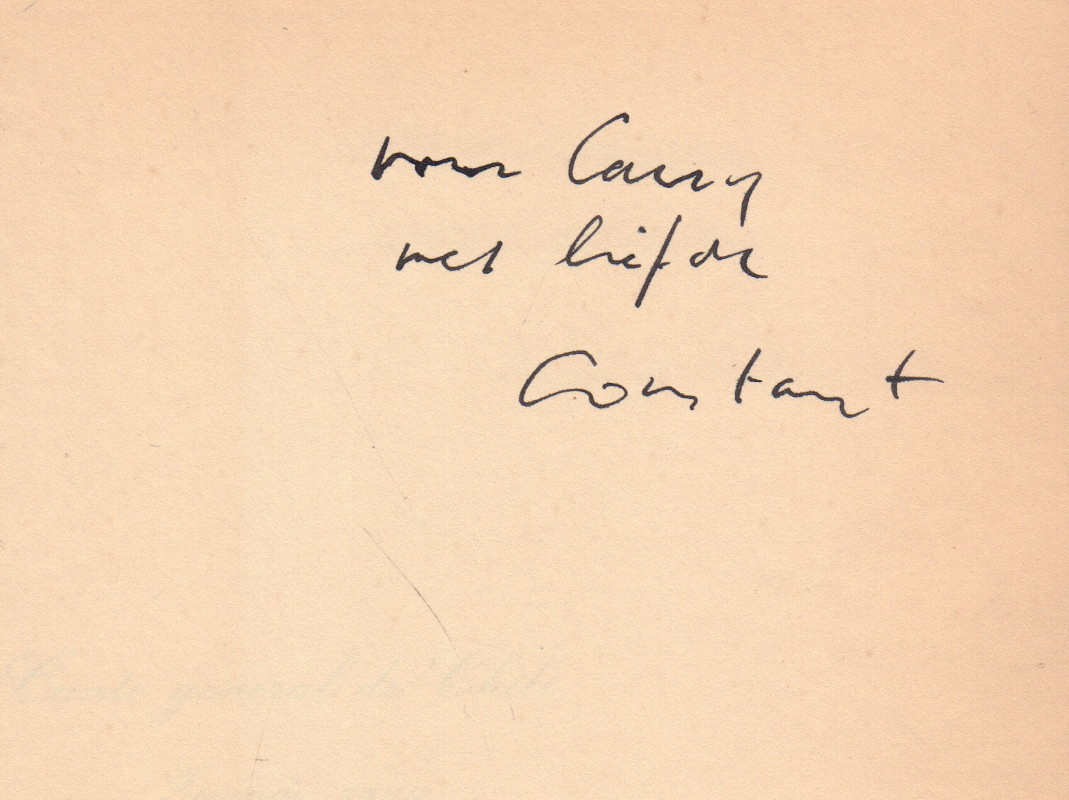 voor Carry
met liefde
Constant